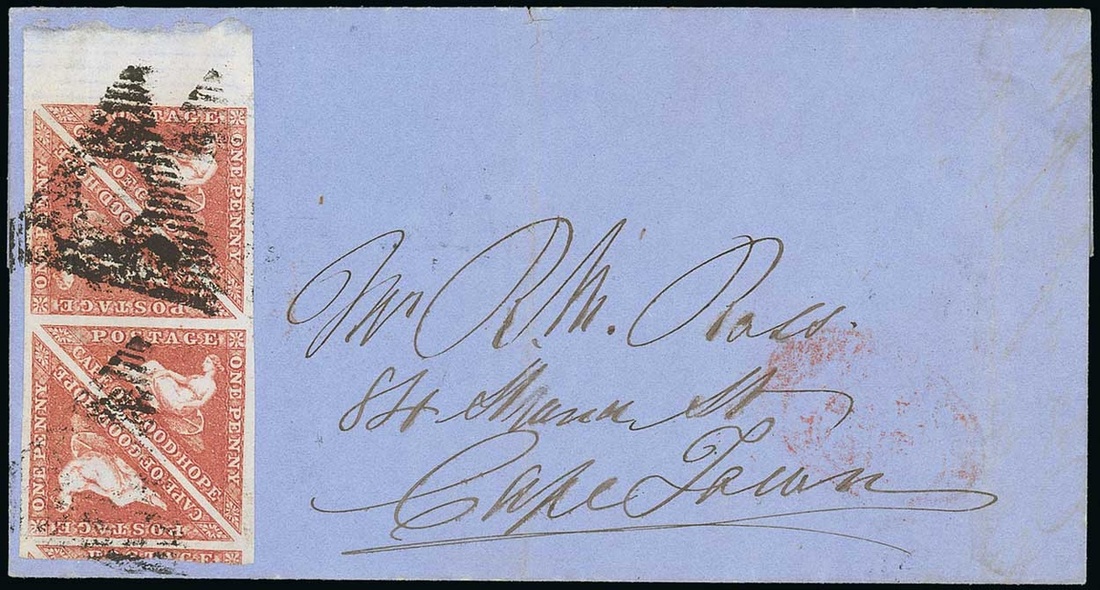 POSTAGE
ONE PENNY
ONE PENNY
GOOD HOPE
POSTAGE
POSTAGE
ONE PENNY
CAPE OF GOOD HOPE
CAPE OF GOOD HOPE
ONE PENNY
POSTAGE
POSTAGE
Mr R. M. Ross.
84 St
Cape Town